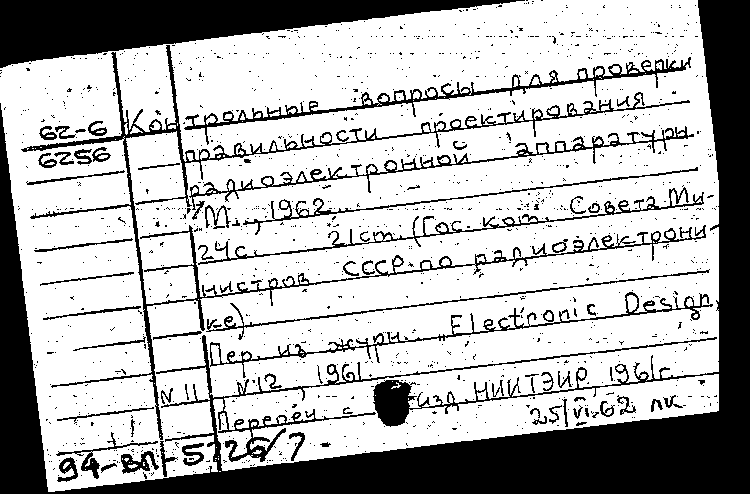 62-6 Контрольные вопросы для проверки
6256 правильности проектирования
радиоэлектронной аппаратуры.
М., 1962
24с. 21ст. (Гос. ком. Совета Ми-
нистров СССР по радиоэлектрони-
ке).
Пер. из журн. „Electronic Design,
N11, N12, 1961.
Перепеч. с изд. НИИТЭИР, 1961г.
25/VI-62 лк
94-ВП-5726/7-